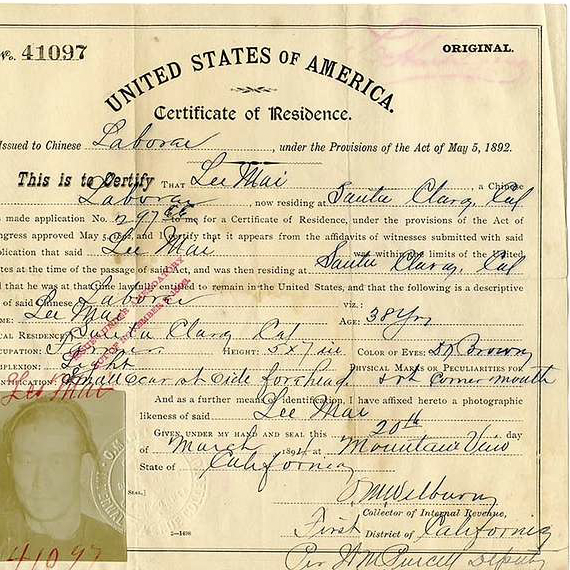 No. 41097
ORIGINAL.
UNITED STATES OF AMERICA.
Certificate of Residence.
Issued to Chinese Laborer, under the Provisions of the Act of May 5, 1892.
This is to Certify THAT Lee Mai, a Chinese
Laborer, now residing at Santa Clara, Cal
s made application No. 297 to me for a Certificate of Residence, under the provisions of the Act of
ngress approved May 5, 1892, and I certify that it appears from the affidavits of witnesses submitted with said
plication that said Lee Mai was within the limits of the United
tes at the time of the passage of said Act, and was then residing at Santa Clara, Cal
d that he was at that time lawfully entitled to remain in the United States, and that the following is a descriptive
of said Chinese Laborer viz.:
ME: Lee Mai AGE: 38 Yrs
AL RESIDENCE: Santa Clara Cal
CUPATION: Farmer HEIGHT: 5 x 7 in COLOR OF EYES: Dk Brown
MPLEXION: Light PHYSICAL MARKS OR PECULIARITIES FOR
NTIFICATION: Small scar st side forehead corner mouth
Lee Mai
And as a further means of identification, I have affixed hereto a photographic
likeness of said Lee Mai
GIVEN UNDER MY HAND AND SEAL this 20th day
of March, 1894, at Mountain View
State of California
[SEAL.]
O M Welburn
Collector of Internal Revenue,
First District of California
2—1496
Per W M Purcell Deputy
41097